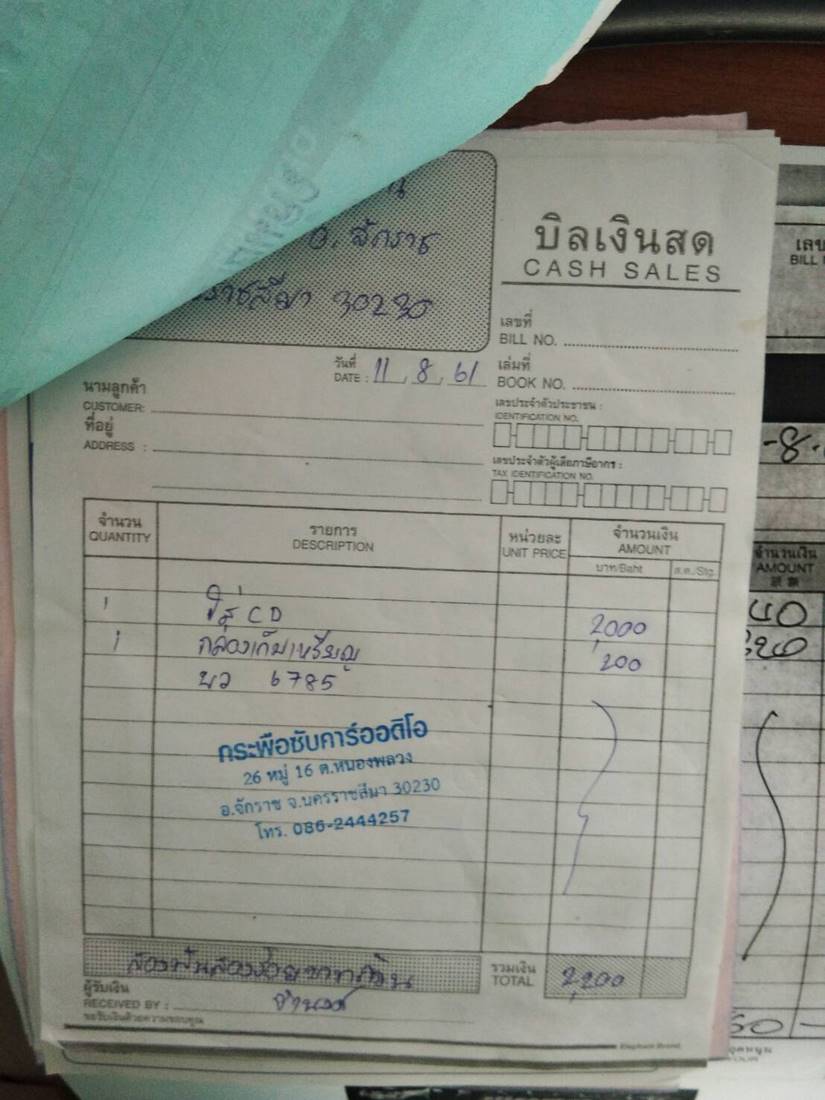 อ. จักราช
ราชสีมา 30230
บิลเงินสด
CASH SALES
เลขที่
BILL NO.
วันที่
DATE : 11 , 8 , 61
เล่มที่
BOOK NO.
นามลูกค้า
CUSTOMER:
ที่อยู่
ADDRESS :
เลขประจำตัวประชาชน :
IDENTIFICATION NO.
เลขประจำตัวผู้เสียภาษีอากร :
TAX IDENTIFICATION NO.
จำนวน รายการ หน่วยละ จำนวนเงิน
QUANTITY DESCRIPTION UNIT PRICE AMOUNT
บาท/Baht ส.ต./Stg.
1 CD 2,000
1 กล่องเก็บเหรียญ 200
บว 6785
กระพือซับคาร์ออดิโอ
26 หมู่ 16 ต.หนองพลวง
อ.จักราช จ.นครราชสีมา 30230
โทร. 086-2444257
สองพันสองร้อยบาทถ้วน
รวมเงิน
TOTAL 2,200
ผู้รับเงิน
RECEIVED BY :
ขอรับเงินด้วยความขอบคุณ
Elephant Brand
เลข
BILL
-8-
จำนวนเงิน
AMOUNT